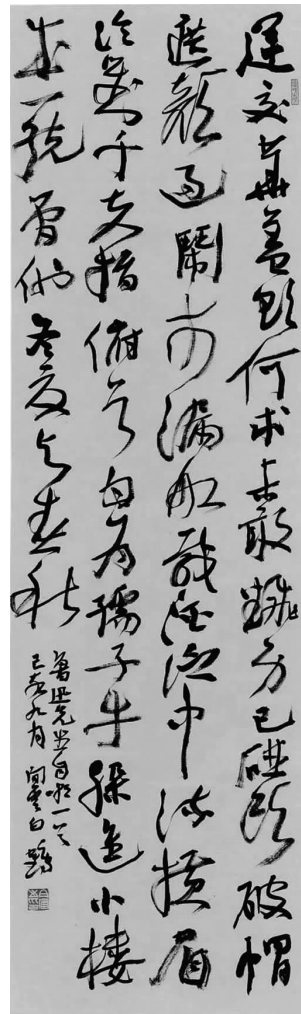 運交華蓋欲何求未敢翻身已碰頭破帽
遮顏過鬧市漏船載酒泛中流橫眉
冷對千夫指俯首甘為孺子牛躲進小樓
成一統管他冬夏與春秋
魯迅先生自嘲一首
己亥九月